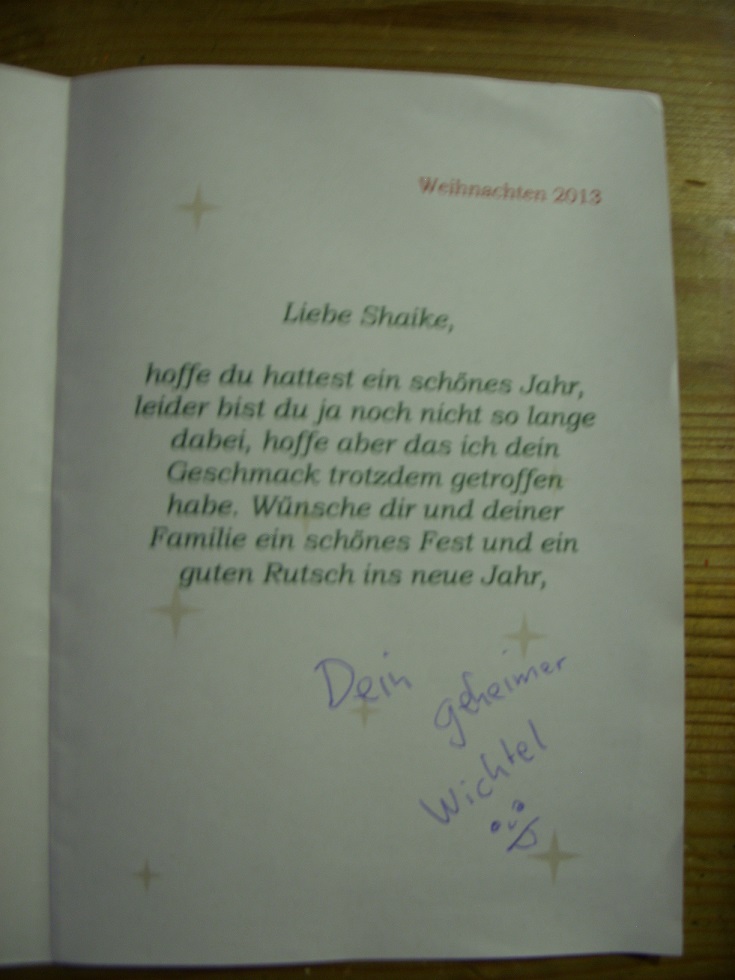 Weihnachten 2013
Liebe Shaike,
hoffe du hattest ein schönes Jahr,
leider bist du ja noch nicht so lange
dabei, hoffe aber das ich dein
Geschmack trotzdem getroffen
habe. Wünsche dir und deiner
Familie ein schönes Fest und ein
guten Rutsch ins neue Jahr,
Dein geheimer
Wichtel